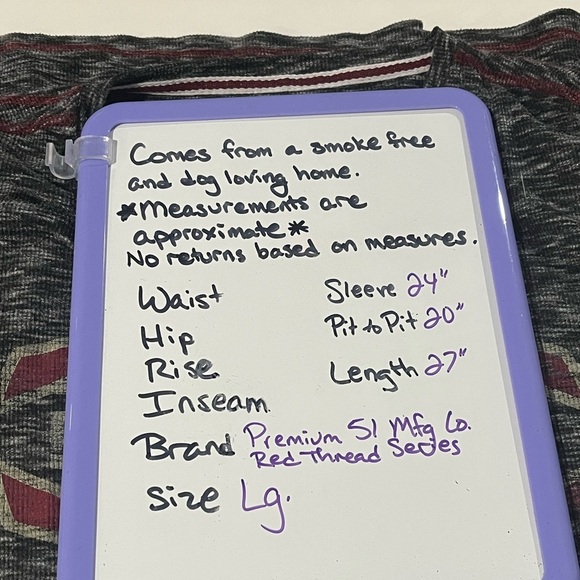 Comes from a smoke free
and dog loving home.
*Measurements are
approximate*
No returns based on measures.
Waist
Hip
Rise
Inseam
Sleeve 24"
Pit to Pit 20"
Length 27"
Brand Premium 51 Mfg Co.
Red Thread Series
Size Lg.